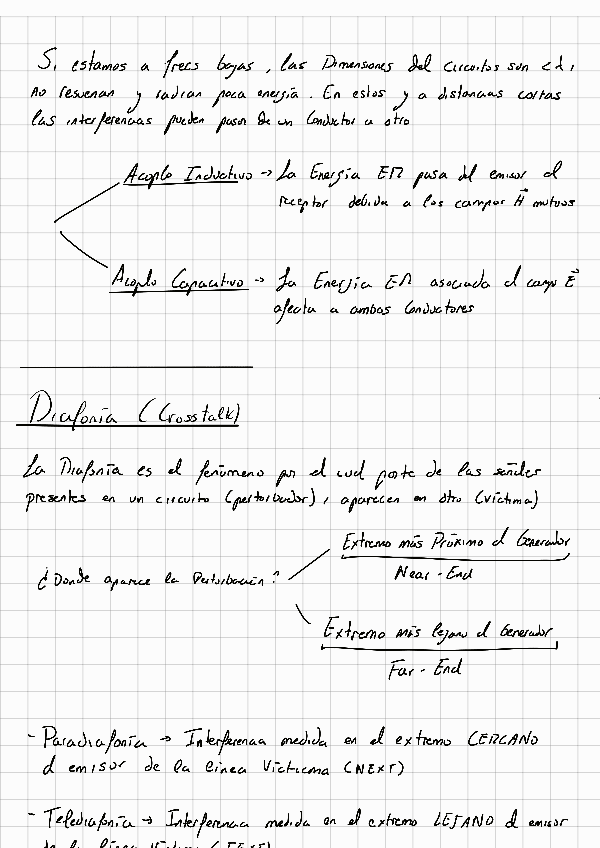 Si estamos a frecs bajas, las Dimensiones del circuitos son < d,
no resuenan y radian poca energía. En estos y a distancias cortas
las interferencias pueden pasar de un Conductor a otro
Acoplo Inductivo → La Energía EM pasa del emisor al
receptor debida a los campos H⃗ mutuos
Acoplo Capacitivo → La Energía EM asociada al campo E⃗
afecta a ambos Conductores
Diafonía (Crosstalk)
La Diafonía es el fenómeno por el cual parte de las señales
presentes en un circuito (perturbador), aparecen en otro (víctima)
Extremo más Próximo al Generador
¿Donde aparece la Perturbación?
Near-End
Extremo más lejano al Generador
Far-End
- Paradiafonía → Interferencia medida en el extremo CERCANO
al emisor de la línea Víctima (NEXT)
- Telediafonía → Interferencia medida en el extremo LEJANO al emisor
de la línea Víctima (FEXT)